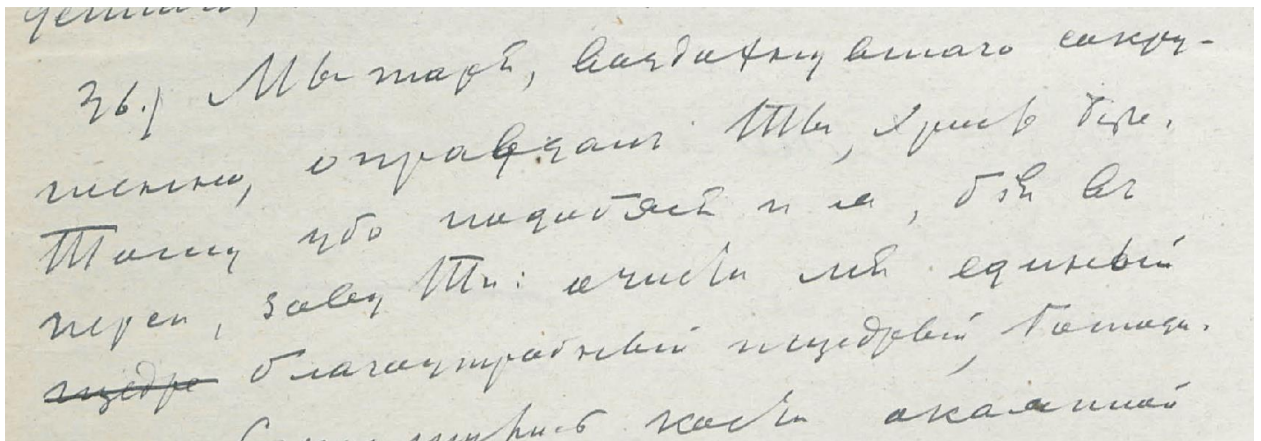 зь.) Мытаря, воздохнувшаго сокру-
шенно, оправдалъ Ты, Христе Боже.
Тому убо подобяся и я, бія въ
перси, зову Ти: очисти мя единый
щедре благоутробный щедрый, Господи.
окаянной